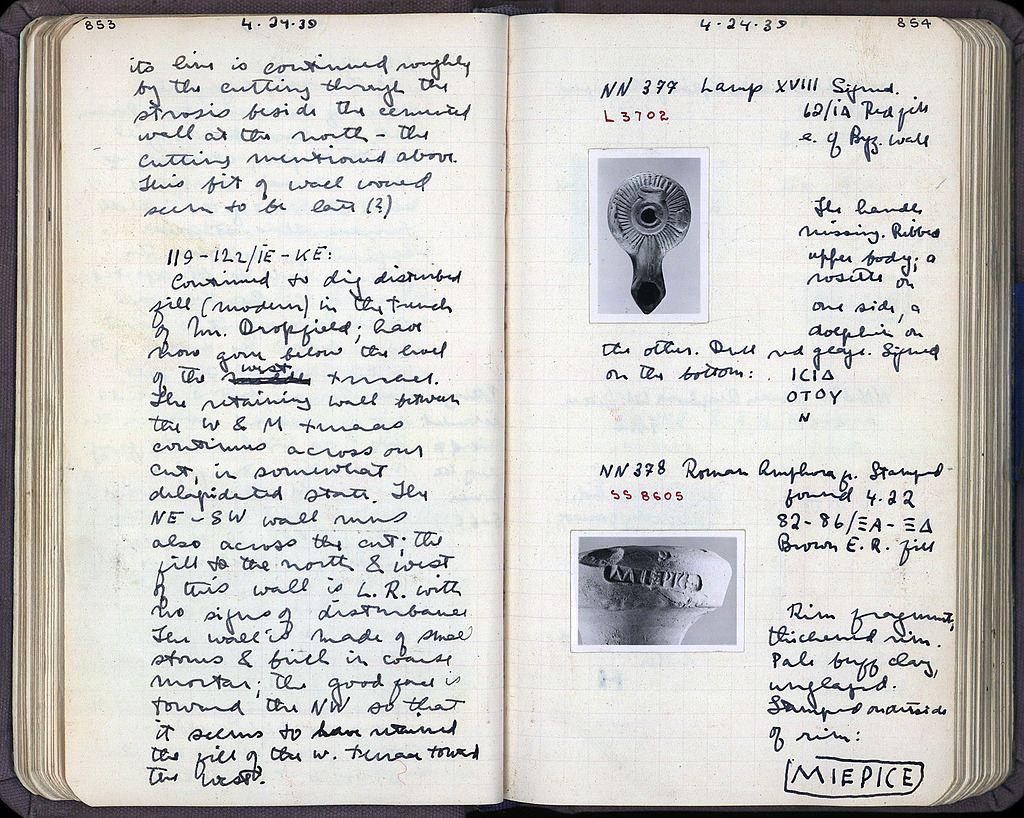 853
4-24-39
its line is continued roughly
by the cutting through the
strosis beside the cemented
wall at the north - the
cutting mentioned above.
This bit of wall would
seem to be late (?)
119-122/ΙΕ-ΚΕ:
Continued to dig disturbed
fill (modern) in the trench
of Mr. Dropfield; have
now gone below the level
of the west terrace.
The retaining wall between
the W & M terraces
continues across our
cut, in somewhat
delapidated state. The
NE-SW wall runs
also across the cut; the
fill to the north & west
of this wall is L.R. with
no signs of disturbance
The wall is made of small
stones & brick in coarse
mortar; the good face is
toward the NW so that
it seems to have retained
the fill of the W. terrace toward
the west.
4-24-39
854
NN 377 Lamp XVIII Signed.
L 3702
62/ΙΔ Red fill
e. of Byz. wall
The handle
missing. Ribbed
upper body; a
rosette on
one side, a
dolphin on
the other. Dull red glaze. Signed
on the bottom:
ΙCΙΔ
ΟΤΟΥ
Ν
NN 378 Roman Amphora fr. Stamped
SS 8605
found 4.22
82-86/ΞΑ-ΞΔ
Brown E.R. fill
MIEPICE
Rim fragment,
thickened rim.
Pale buff clay,
unglazed.
Stamped on outside
of rim:
MIEPICE